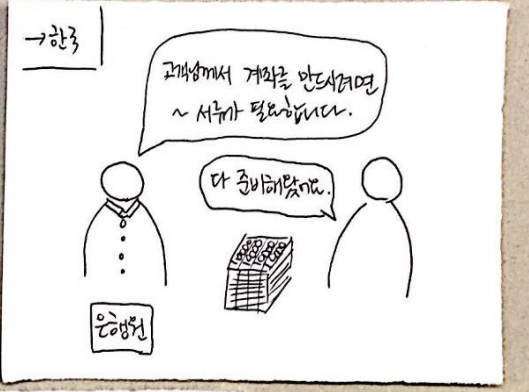 →한국
고객님께서 계좌를 만드시려면
~ 서류가 필요합니다.
다 준비해왔어요.
은행원